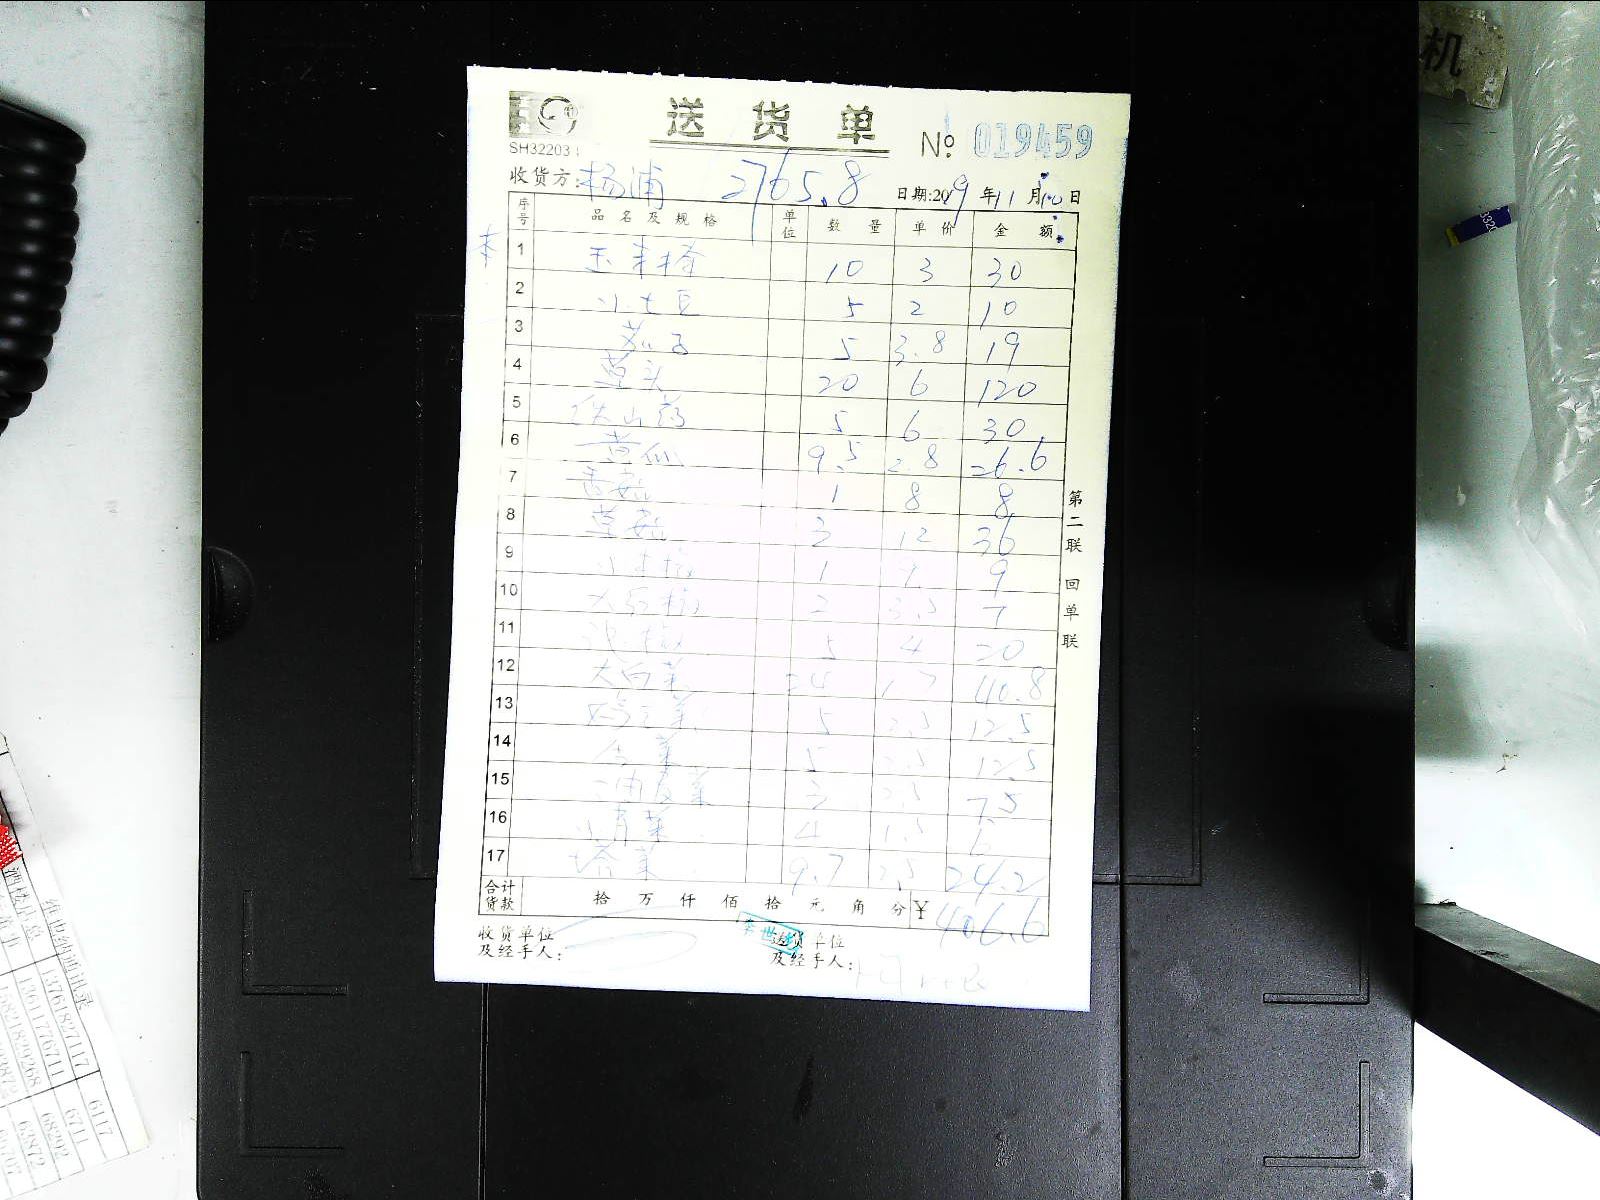 机
送货单
SH32203
№ 019459
收货方: 杨浦 2765.8 日期:2019年11月10日
序号 品名及规格 单位 数量 单价 金额
1 玉米棒 10 3 30
2 小土豆 5 2 10
3 茄子 5 3.8 19
4 草头 20 6 120
5 铁山药 5 6 30
6 黄瓜 9.5 2.8 26.6
7 香菇 1 8 8
8 草菇 3 12 36
9 小米椒 1 9 9
10 大红椒 2 3.5 7
11 5 4 20
12 大白菜 24 1.7 40.8
13 5 2.5 12.5
14 菜 5 2.5 12.5
15 油麦菜 3 2.5 7.5
16 小青菜 4 1.5 6
17 塔菜 9.7 2.5 24.2
合计货款 拾 万 仟 佰 拾 元 角 分 ¥
收货单位
及经手人:
送货单位
及经手人:
第二联 回单联
13764827117 6117
13611776711 6711
15821829268 68292